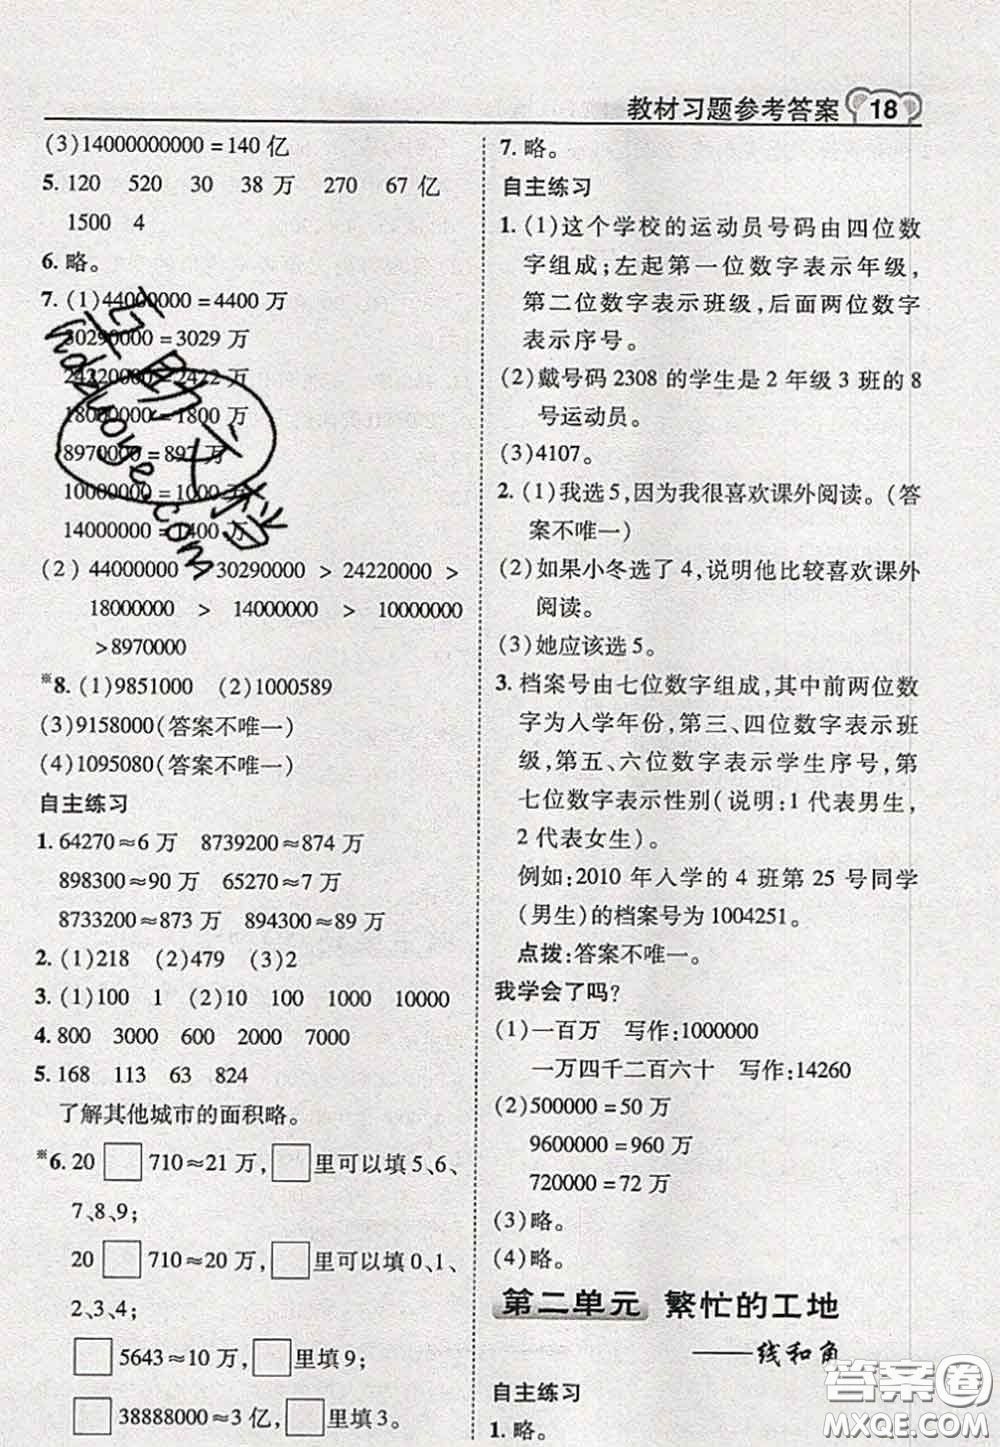 教材习题参考答案 18
(3)14000000000=140亿
5. 120 520 30 38万 270 67亿
1500 4
6. 略。
7. (1)44000000=4400万
30290000=3029万
24220000=2422万
18000000=1800万
8970000=897万
10000000=1000万
14000000=1400万
(2) 44000000 > 30290000 > 24220000 >
18000000 > 14000000 > 10000000
>8970000
※8. (1)9851000 (2)1000589
(3)9158000(答案不唯一)
(4)1095080(答案不唯一)
自主练习
1. 64270≈6万 8739200≈874万
898300≈90万 65270≈7万
8733200≈873万 894300≈89万
2. (1)218 (2)479 (3)2
3. (1)100 1 (2)10 100 1000 10000
4. 800 3000 600 2000 7000
5. 168 113 63 824
了解其他城市的面积略。
※6. 20□710≈21万,□里可以填5、6、
7、8、9;
20□710≈20万,□里可以填0、1、
2、3、4;
□5643≈10万,□里填9;
□38888000≈3亿,□里填3。
7. 略。
自主练习
1. (1)这个学校的运动员号码由四位数
字组成;左起第一位数字表示年级,
第二位数字表示班级,后面两位数字
表示序号。
(2)戴号码2308的学生是2年级3班的8
号运动员。
(3)4107。
2. (1)我选5,因为我很喜欢课外阅读。(答
案不唯一)
(2)如果小冬选了4,说明他比较喜欢课外
阅读。
(3)她应该选5。
3. 档案号由七位数字组成,其中前两位数
字为入学年份,第三、四位数字表示班
级,第五、六位数字表示学生序号,第
七位数字表示性别(说明:1代表男生,
2代表女生)。
例如:2010年入学的4班第25号同学
(男生)的档案号为1004251。
点拨:答案不唯一。
我学会了吗?
(1)一百万 写作:1000000
一万四千二百六十 写作:14260
(2)500000=50万
9600000=960万
720000=72万
(3)略。
(4)略。
第二单元 繁忙的工地
——线和角
自主练习
1. 略。
互动作业
hdzuoye.com
答案圈
MXQE.COM